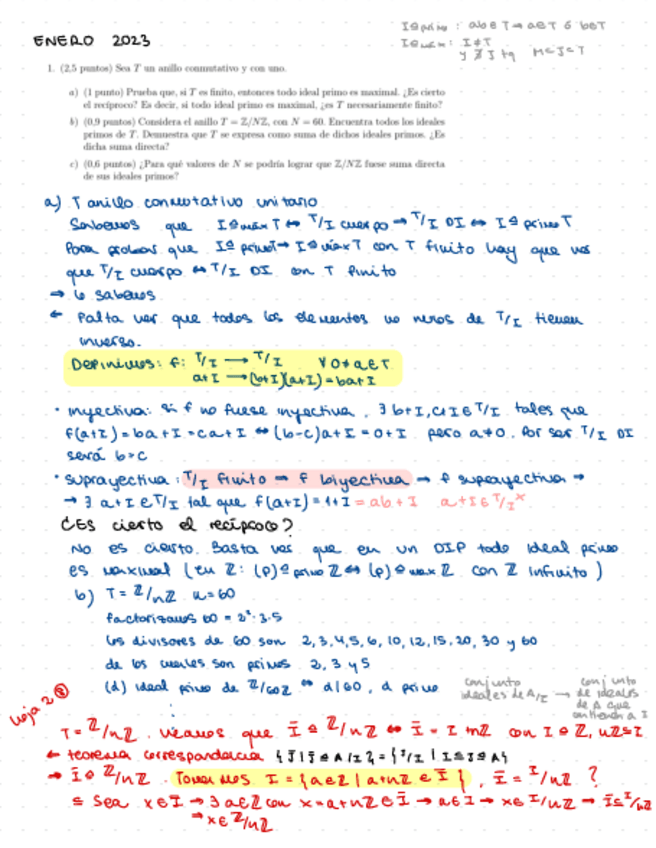 ENERO 2023
I⊴primo : ab∈I → a∈I ó b∈I
I⊴máx : I≠T
y ∄J tq M⊊J⊊T
1. (2,5 puntos) Sea T un anillo conmutativo y con uno.
a) (1 punto) Prueba que, si T es finito, entonces todo ideal primo es maximal. ¿Es cierto
el recíproco? Es decir, si todo ideal primo es maximal, ¿es T necesariamente finito?
b) (0,9 puntos) Considera el anillo T = Z/NZ, con N = 60. Encuentra todos los ideales
primos de T. Demuestra que T se expresa como suma de dichos ideales primos. ¿Es
dicha suma directa?
c) (0,6 puntos) ¿Para qué valores de N se podría lograr que Z/NZ fuese suma directa
de sus ideales primos?
a) T anillo conmutativo unitario
Sabemos que I⊴máx T ↔ T/I cuerpo → T/I DI ↔ I⊴ primo T
Para probar que I⊴ primo T → I⊴máx T con T finito hay que ver
que T/I cuerpo ↔ T/I DI con T finito
→ lo sabemos
← Falta ver que todos los elementos no nulos de T/I tienen
inverso.
Definimos: f: T/I → T/I ∀ 0≠a∈T
a+I → (b+I)(a+I) = ba+I
· inyectiva: si f no fuese inyectiva, ∃ b+I, c+I ∈ T/I tales que
f(a+I) = ba+I = ca+I ↔ (b-c)a+I = 0+I pero a≠0. Por ser T/I DI
será b=c
· suprayectiva: T/I finito → f biyectiva → f suprayectiva →
→ ∃ a+I ∈ T/I tal que f(a+I) = 1+I = ab+I a+I ∈ T/I ˣ
¿Es cierto el recíproco?
No es cierto. Basta ver que en un DIP todo ideal primo
es maximal (en Z: (p)⊴ primo Z ↔ (p)⊴ max Z con Z infinito)
b) T = Z/nZ n=60
factorizamos 60 = 2²·3·5
los divisores de 60 son 2,3,4,5,6,10,12,15,20,30 y 60
de los cuales son primos 2, 3 y 5
(d) ideal primo de Z/60Z ↔ d|60, d primo
conjunto ideales de A/I → conjunto de ideales de A que contienen a I
hoja 2 ⑧
T = Z/nZ. veamos que Ī ⊴ Z/nZ ↔ Ī = I/nZ con I⊴Z, nZ⊆I
← teorema correspondencia {J̄ | J̄ ⊴ A/I} = {J/I | I⊆J⊴A}
→ Ī ⊴ Z/nZ. Tomamos I = {a∈Z | a+nZ ∈ Ī}, Ī = I/nZ ?
⊆ Sea x∈Ī → ∃ a∈Z con x = a+nZ ∈ Ī → a∈I → x∈I/nZ → Ī⊆I/nZ
→ x∈Z/nZ